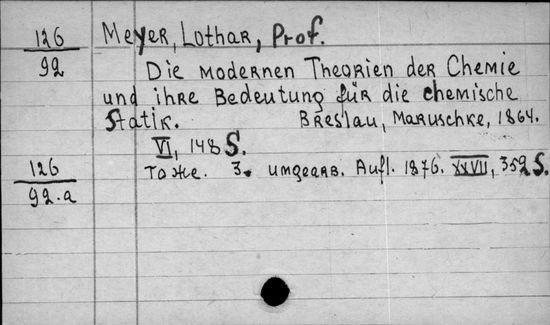 126 Meyer, Lothar, Prof.
92 Die modernen Theorien der Chemie
und ihre Bedeutung für die chemische
Statik. Breslau, Maruschke, 1864.
VI, 148 S.
126 То же. 3. umgearb. Aufl. 1876. XXVII, 352 S.
92.a